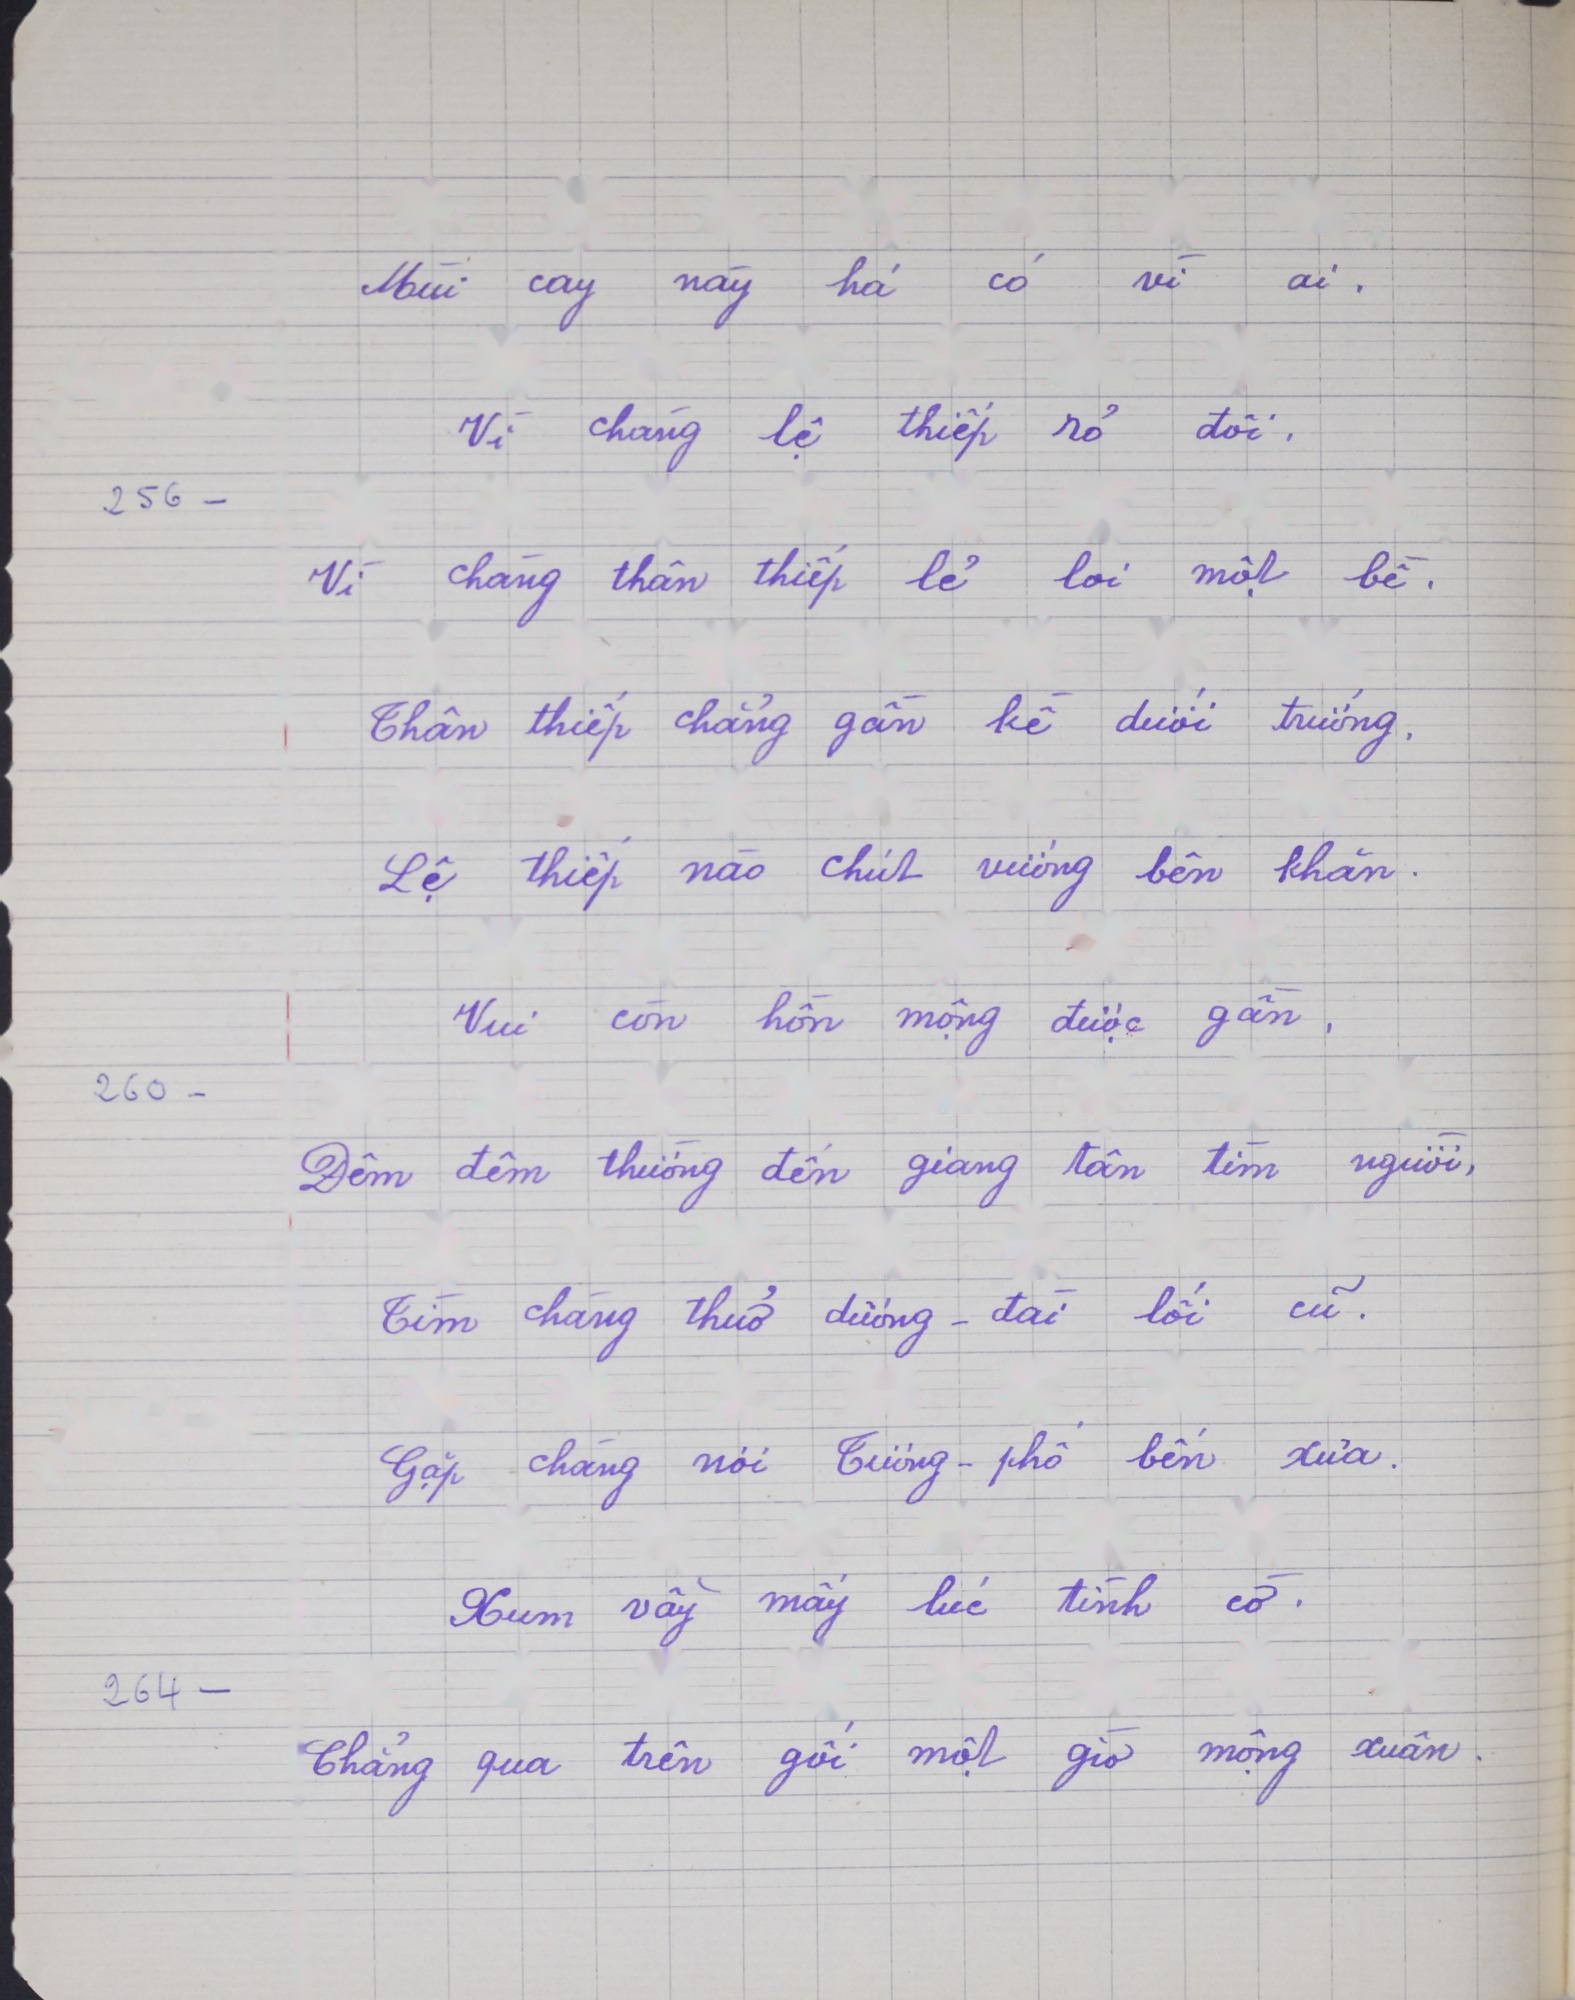 Mùi cay này há có vì ai.
Vì chàng lệ thiếp rỏ đôi.
256 –
Vì chàng thân thiếp lẻ loi một bề.
Thân thiếp chẳng gần kề dưới trướng,
Lệ thiếp nào chút vướng bên khăn.
Vui còn hồn mộng được gần,
260 –
Đêm đêm thường đến giang tân tìm người,
Tìm chàng thuở dương-đài lối cũ.
Gặp chàng nơi Tương-phố bến xưa.
Xum vầy mấy lúc tình cờ.
264 –
Chẳng qua trên gối một giờ mộng xuân.